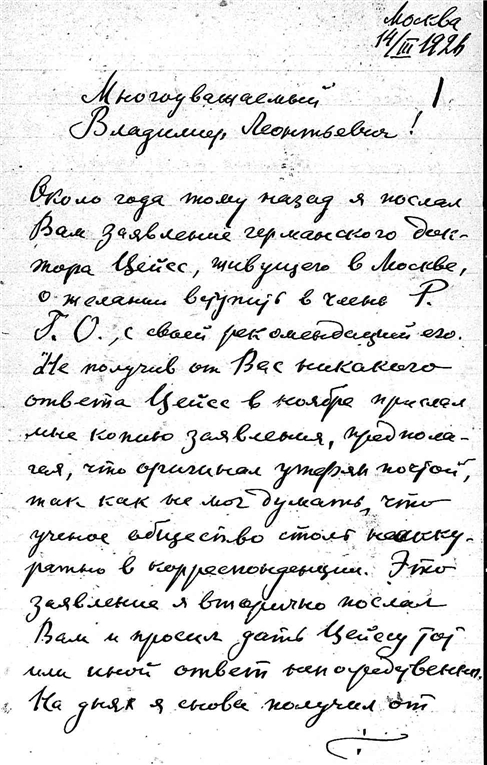 Москва
14/III 1926
Многоуважаемый
Владимир Леонтьевич!
Около года тому назад я послал
Вам заявление германского док-
тора Цейсс, живущего в Москве,
о желании вступить в члены Р.
Г. О., с своей рекомендацией его.
Не получив от Вас никакого
ответа Цейсс в ноябре прислал
мне копию заявления, предпола-
гая, что оригинал утерян почтой,
так как не мог думать, что
ученое общество столь неакку-
ратно в корреспонденции. Это
заявление я вторично послал
Вам и просил дать Цейссу тот
или иной ответ непосредственно.
На днях я снова получил от